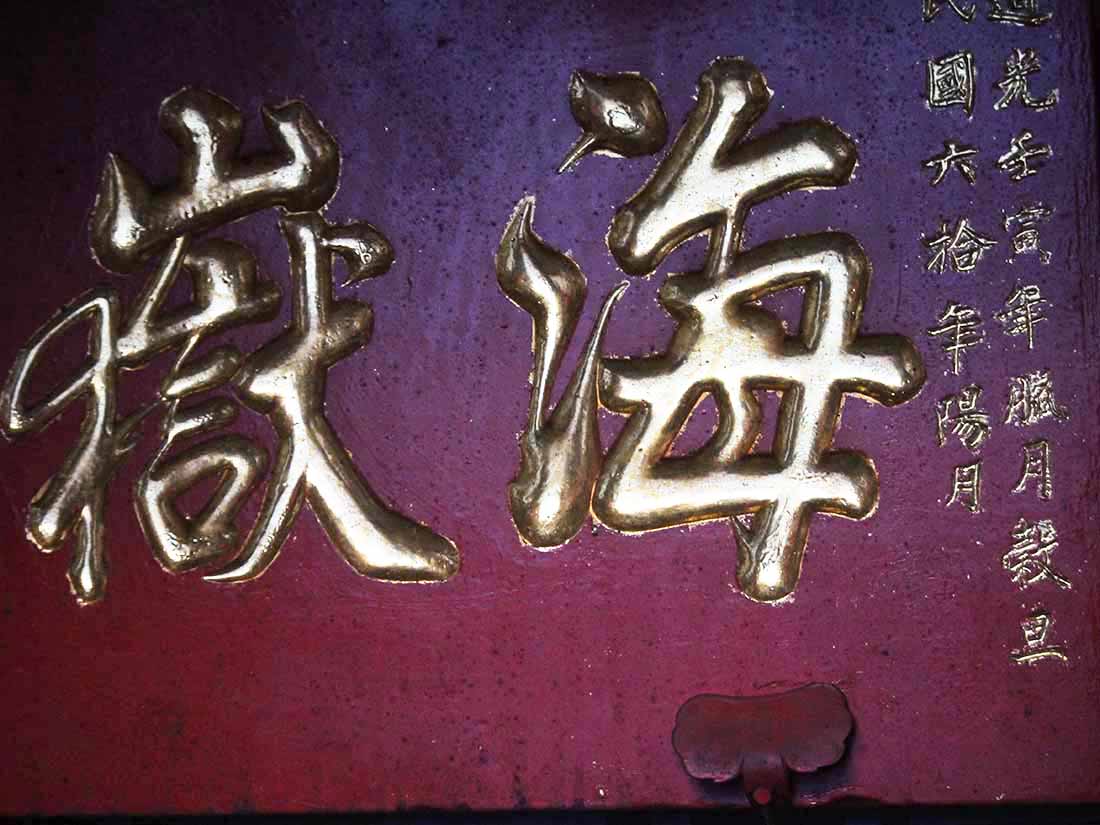 道光壬寅年臘月穀旦
民國六拾年陽月
海嶽